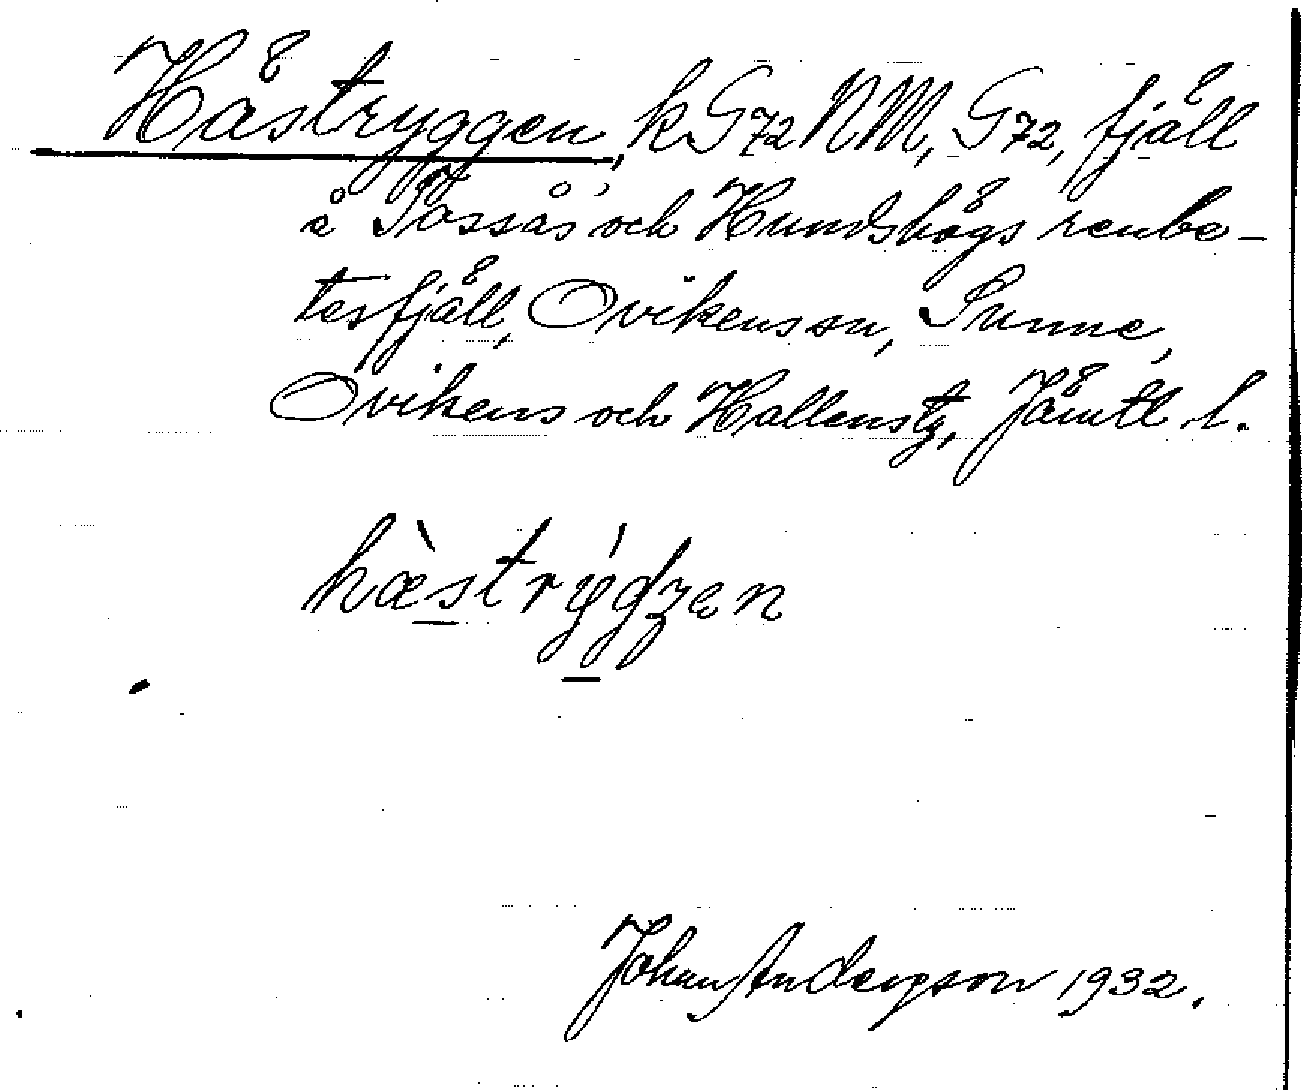 Hästryggen, k G72 NM, G72, fjäll
å Tossås och Hundshögs renbe-
tesfjäll, Ovikens sn, Sunne,
Ovikens och Hallens tg, Jämtl l.
hæ̀strýgzen
Johan Anderson 1932.